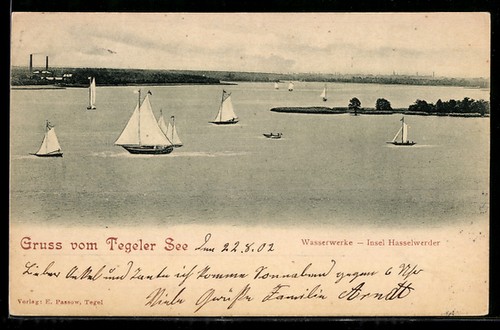 Gruss vom Tegeler See den 22.8.02
Wasserwerke – Insel Hasselwerder
Lieber Onkel und Tante ich komme Sonnabend gegen 6 Uhr
Viele Grüße Familie Arndt
Verlag: E. Passow, Tegel